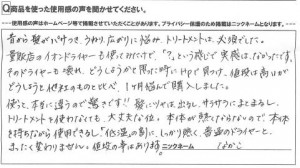 Q商品を使った使用感の声を聞かせてください。
使用感の声はホームページ等で掲載させていただくことがあります。プライバシー保護のため掲載はニックネームとなります。
昔から髪がパサつき、うねり、広がりに悩み、トリートメントは必須でした。
量販店のイオンドライヤーも使ってみたけど、「?」という感じで実感はなかったです。
そのドライヤーも壊れ、どうしようかと思った時にHPで見つけ、値段は高いが
どうしようと他社のものと比べ、1ヶ月悩んで購入しました。
使うと、本当に違うので驚きです!!髪にツヤは出るし、サラサラにまとまるし、
トリートメントを使わなくても、大丈夫な位。本体が熱くならないので、本体
を持ちながら使用できるし「低温」の割に、しっかり乾く、普通のドライヤーと
まったく変わりません。値段の事はあり
ニックネーム